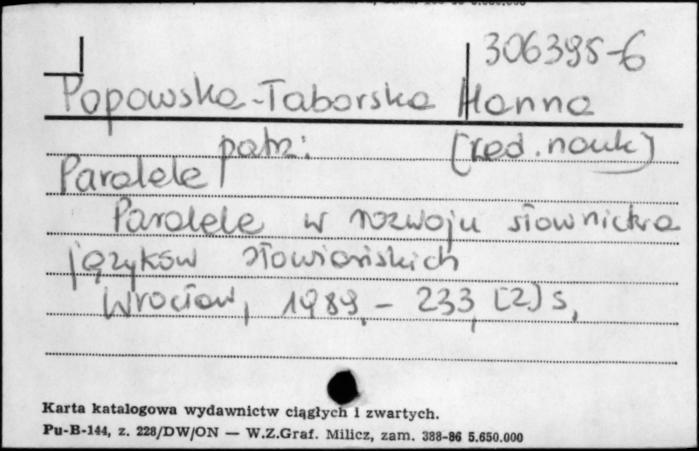 306395-6
Popowska-Taborska Hanna
patrz: (red. nauk)
Paralele
Paralele w rozwoju słownictwa
języków słowiańskich
Wrocław, 1989. - 233, [2] s.
Karta katalogowa wydawnictw ciągłych i zwartych.
Pu-B-144, z. 228/DW/ON — W.Z.Graf. Milicz, zam. 388-86 5.650.000